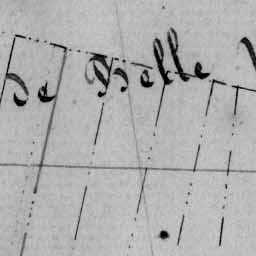 de Belle